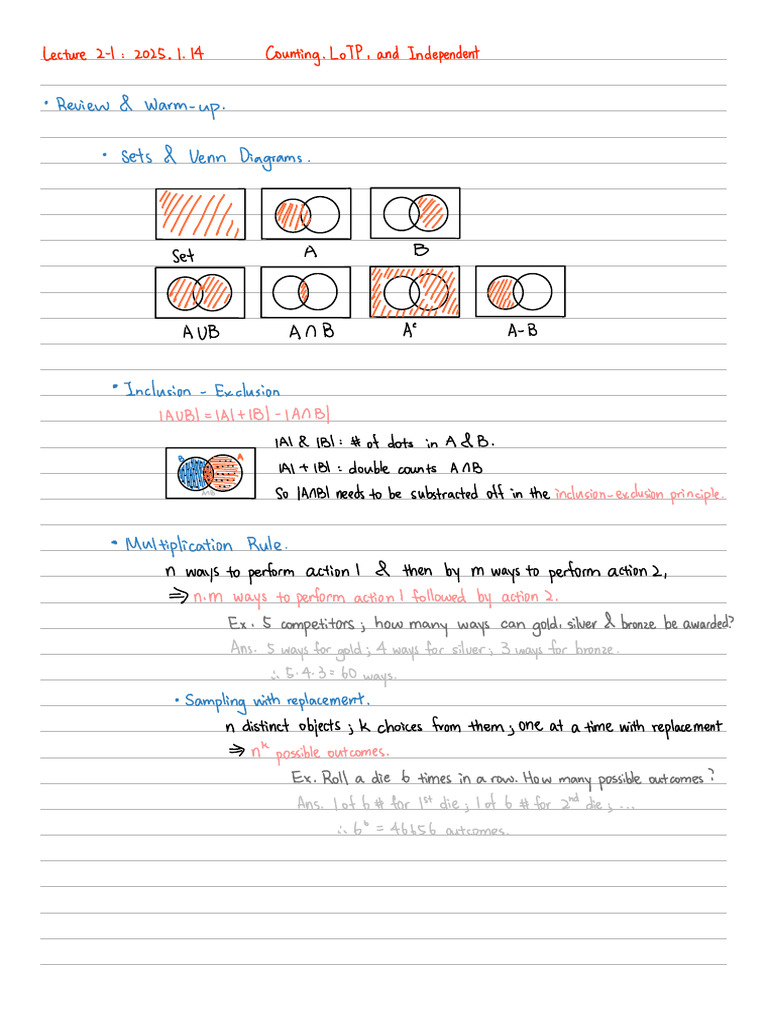 Lecture 2-1 : 2025. 1. 14 Counting, LoTP, and Independent
• Review & Warm-up.
• Sets & Venn Diagrams.
Set A B
A∪B A∩B Aᶜ A-B
• Inclusion - Exclusion
|A∪B| = |A| + |B| - |A∩B|
|A| & |B| : # of dots in A & B.
B A
A∩B
|A| + |B| : double counts A∩B
So |A∩B| needs to be substracted off in the inclusion-exclusion principle.
• Multiplication Rule.
n ways to perform action 1 & then by m ways to perform action 2,
⇒ n·m ways to perform action 1 followed by action 2.
Ex. 5 competitors ; how many ways can gold, silver & bronze be awarded?
Ans. 5 ways for gold ; 4 ways for silver ; 3 ways for bronze.
∴ 5·4·3 = 60 ways.
• Sampling with replacement.
n distinct objects ; k choices from them ; one at a time with replacement
⇒ nᵏ possible outcomes.
Ex. Roll a die 6 times in a row. How many possible outcomes?
Ans. 1 of 6 # for 1ˢᵗ die ; 1 of 6 # for 2ⁿᵈ die ; ...
∴ 6⁶ = 46656 outcomes.